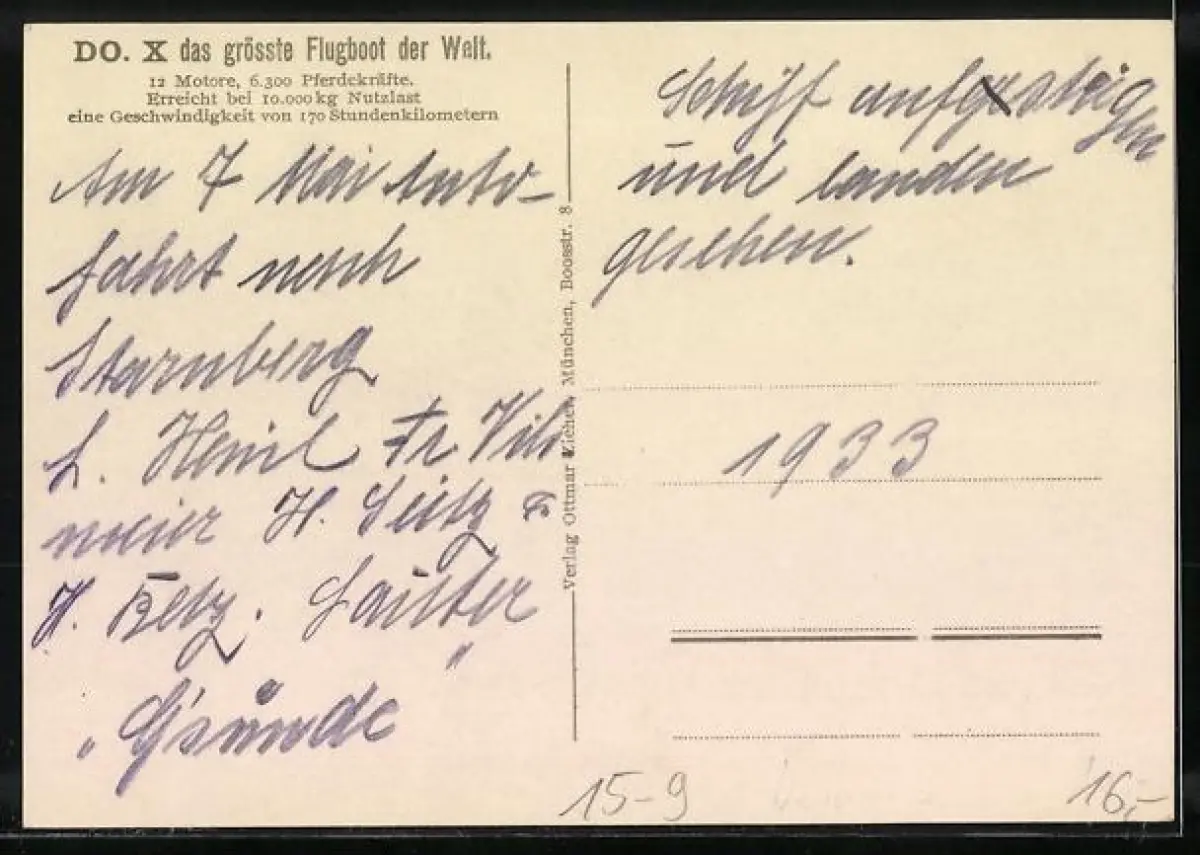 DO. X das grösste Flugboot der Welt.
12 Motore, 6.300 Pferdekräfte.
Erreicht bei 10.000 kg Nutzlast
eine Geschwindigkeit von 170 Stundenkilometern
Am 7 Mai Auto-
fahrt nach
Starnberg
H. Seitz
H. Betz.
" G'sunde "
Schiff aufsteigen
und landen
gesehen.
1933
Verlag Ottmar Zieher, München, Boosstr. 8
15-9
16,-